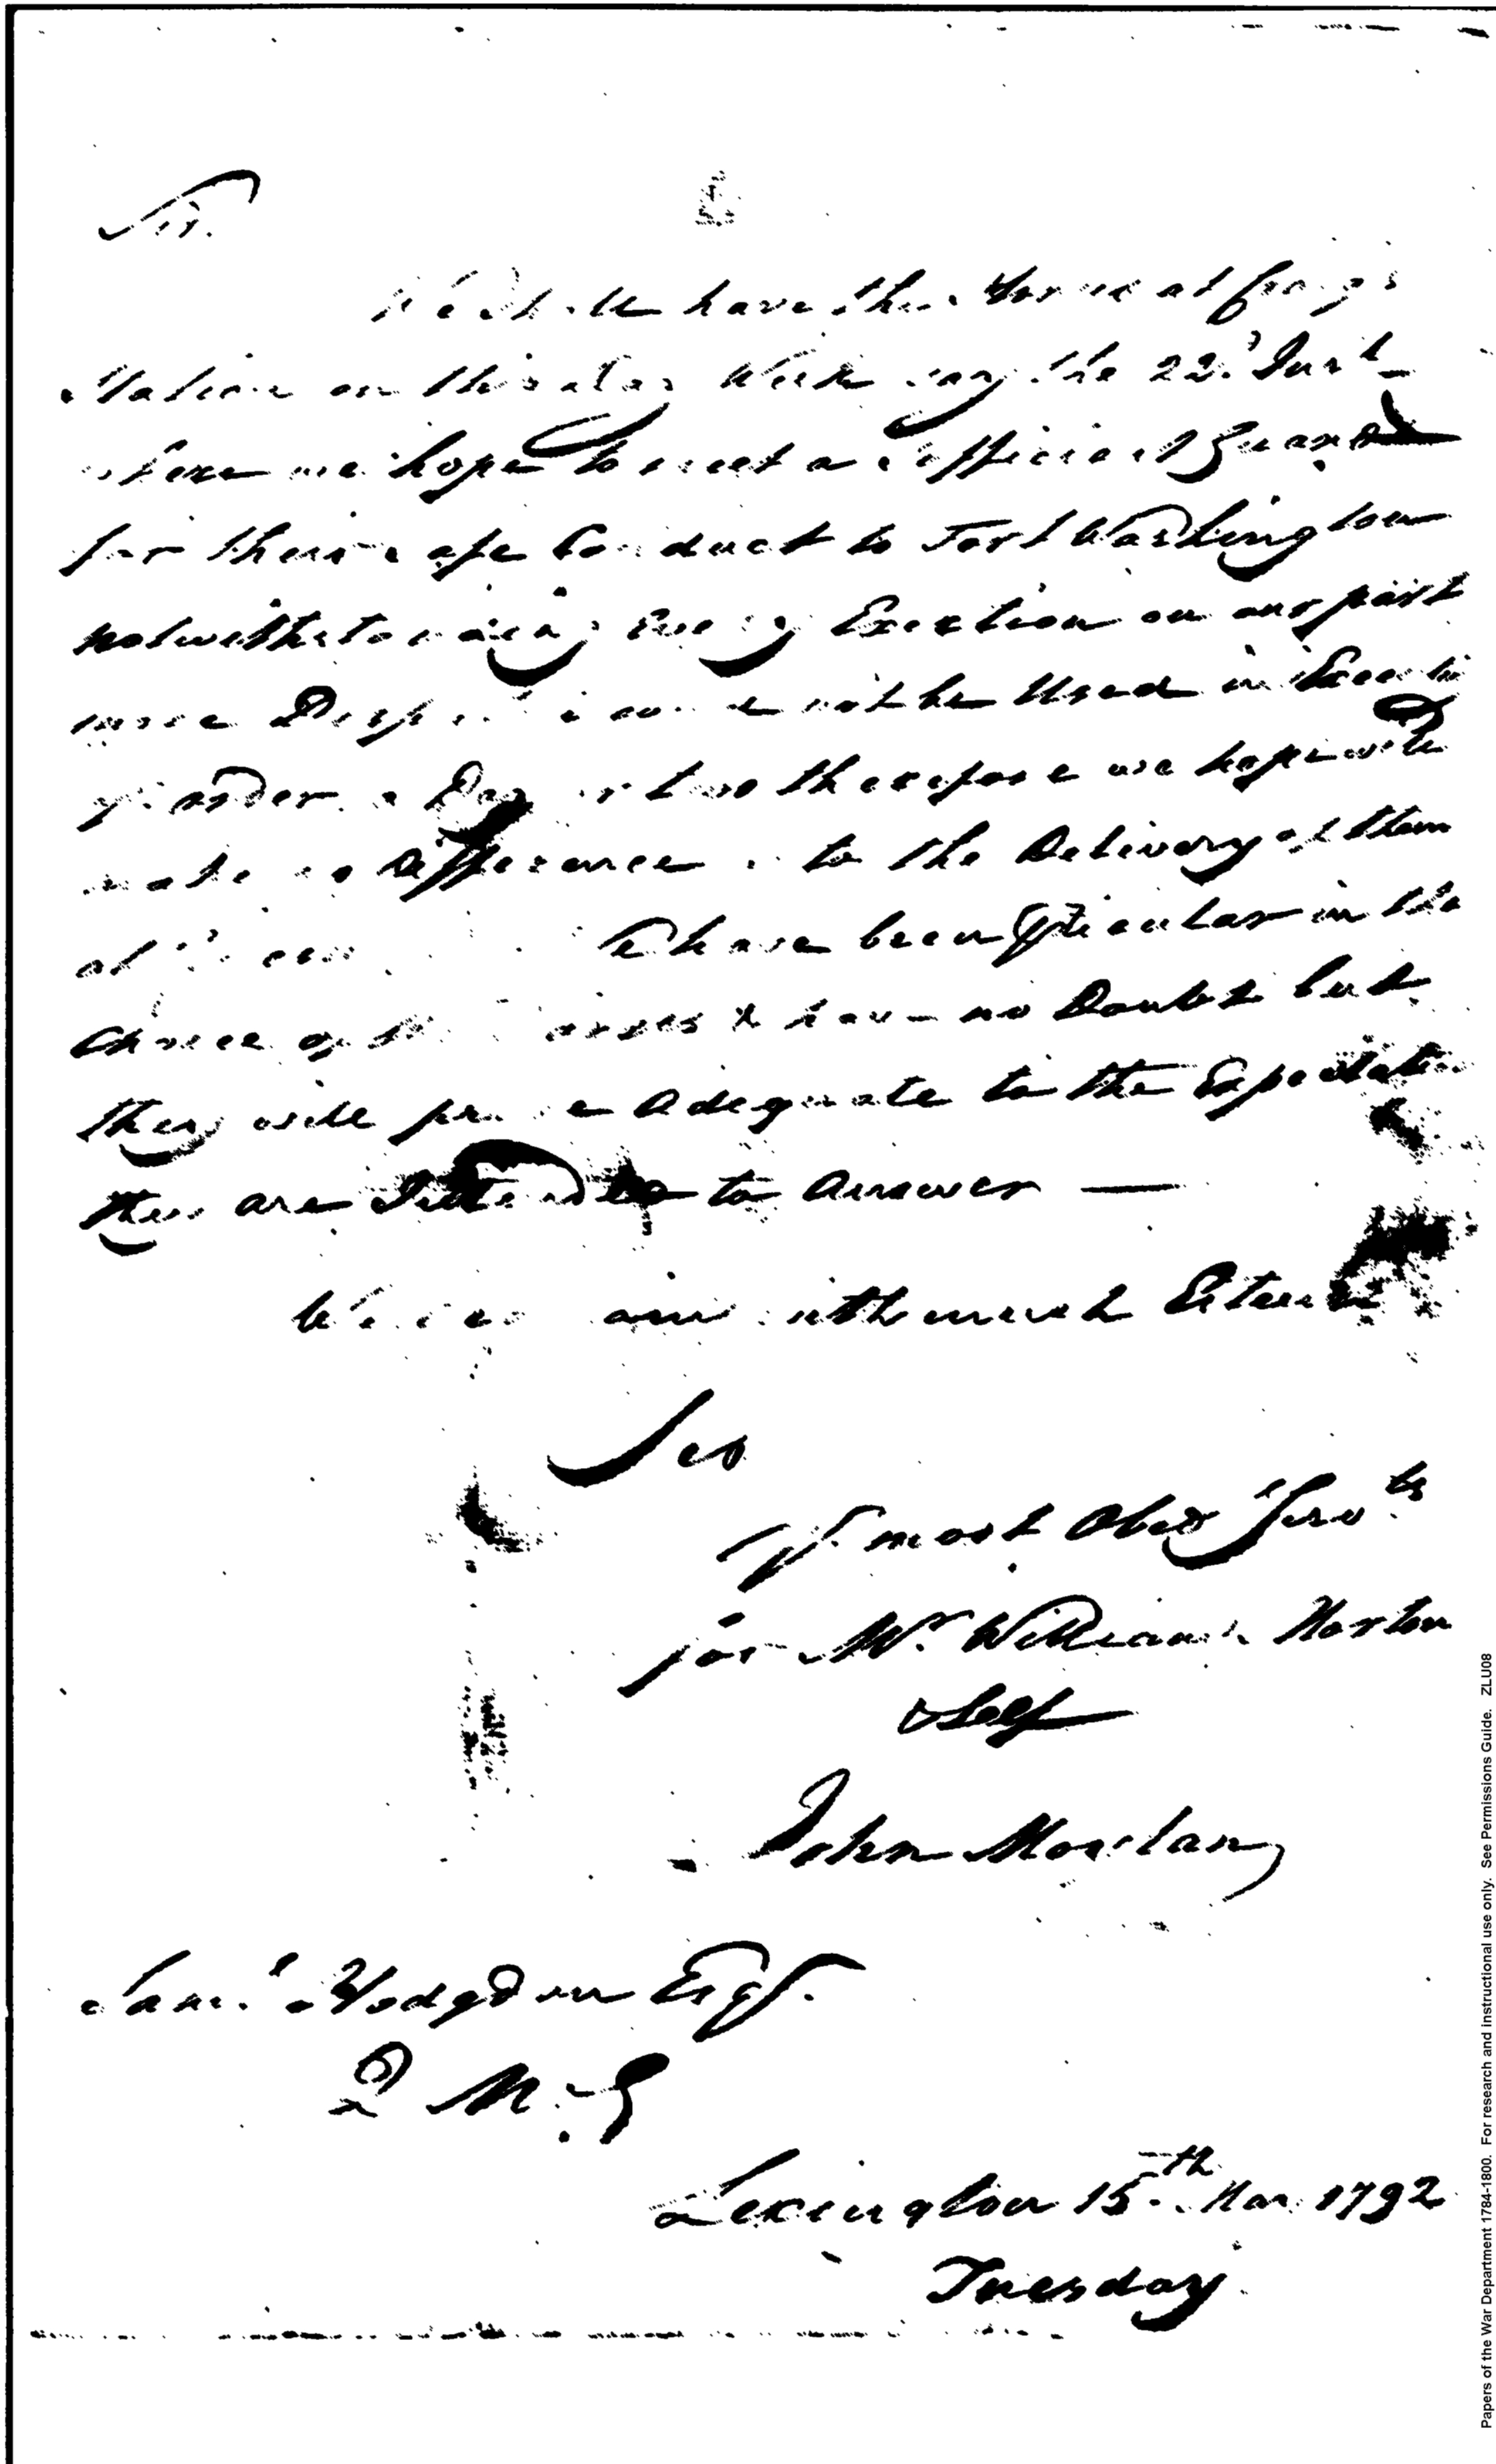 Sir.
We Shall have the Horses at Craig's
Station on this day Week say the 22d Inst
where we hope to meet a sufficient Guard
for their safe Conduct to Fort Washington
notwithstanding every Exertion on our part
more Dispatch could not be Used in Executing
yr order a Day or two therefore we hope will
make no Difference to the Delivery of them
at have been pticular in the
Choice of the Horses & have no Doubt but
they will prove Adequate to the Expectation
they are Intended to Answer —
We are Sir with much Esteem
Sir
Yr most Obed Servts
for Mr William Morton
& Self
John Moylan
Saml Hodgdon Esqr.
Q M. G
Lexington 15th Mar 1792
Tuesday
Papers of the War Department 1784-1800. For research and instructional use only. See Permissions Guide. ZLU08